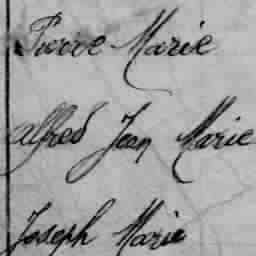 Pierre Marie
alfred Jean Marie
Joseph Marie